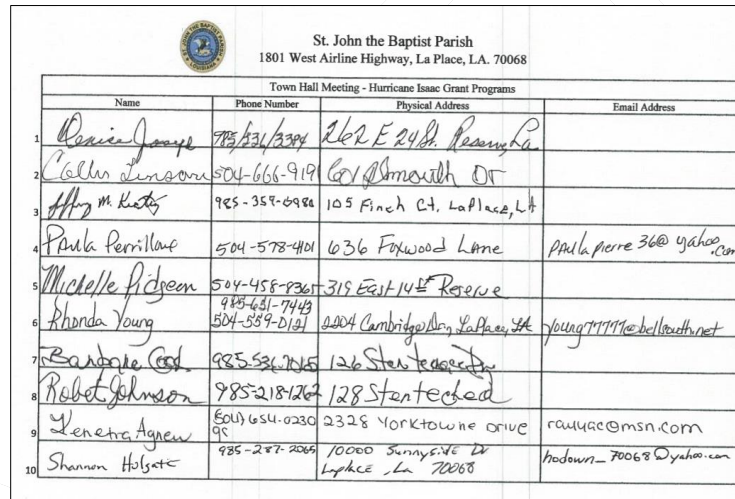 St. John the Baptist Parish
1801 West Airline Highway, La Place, LA. 70068
Town Hall Meeting - Hurricane Isaac Grant Programs
Name Phone Number Physical Address Email Address
1 985/536/3384 262 E 24 St. Reserve, La
2 504-666-9191 Dr
3 M. 985-359-6980 105 Finch Ct. LaPlace, LA
4 Paula Perrilloux 504-578-4101 636 Foxwood Lane paulapierre36@yahoo.com
5 Michelle Pidgeon 504-458-8365 319 East 14th Reserve
985-651-7443
6 Rhonda Young 504-559-0121 2204 Cambridge LaPlace, LA young77777@bellsouth.net
7 126
8 Robet Johnson 985-218-1262 128
9 Kenetra Agnew (504) 654-0230 2328 Yorktowne Drive
10 Shannon Holgate 985-287-2065 10000 Sunnyside Dr
Laplace, La 70068 hodown_70068@yahoo.com